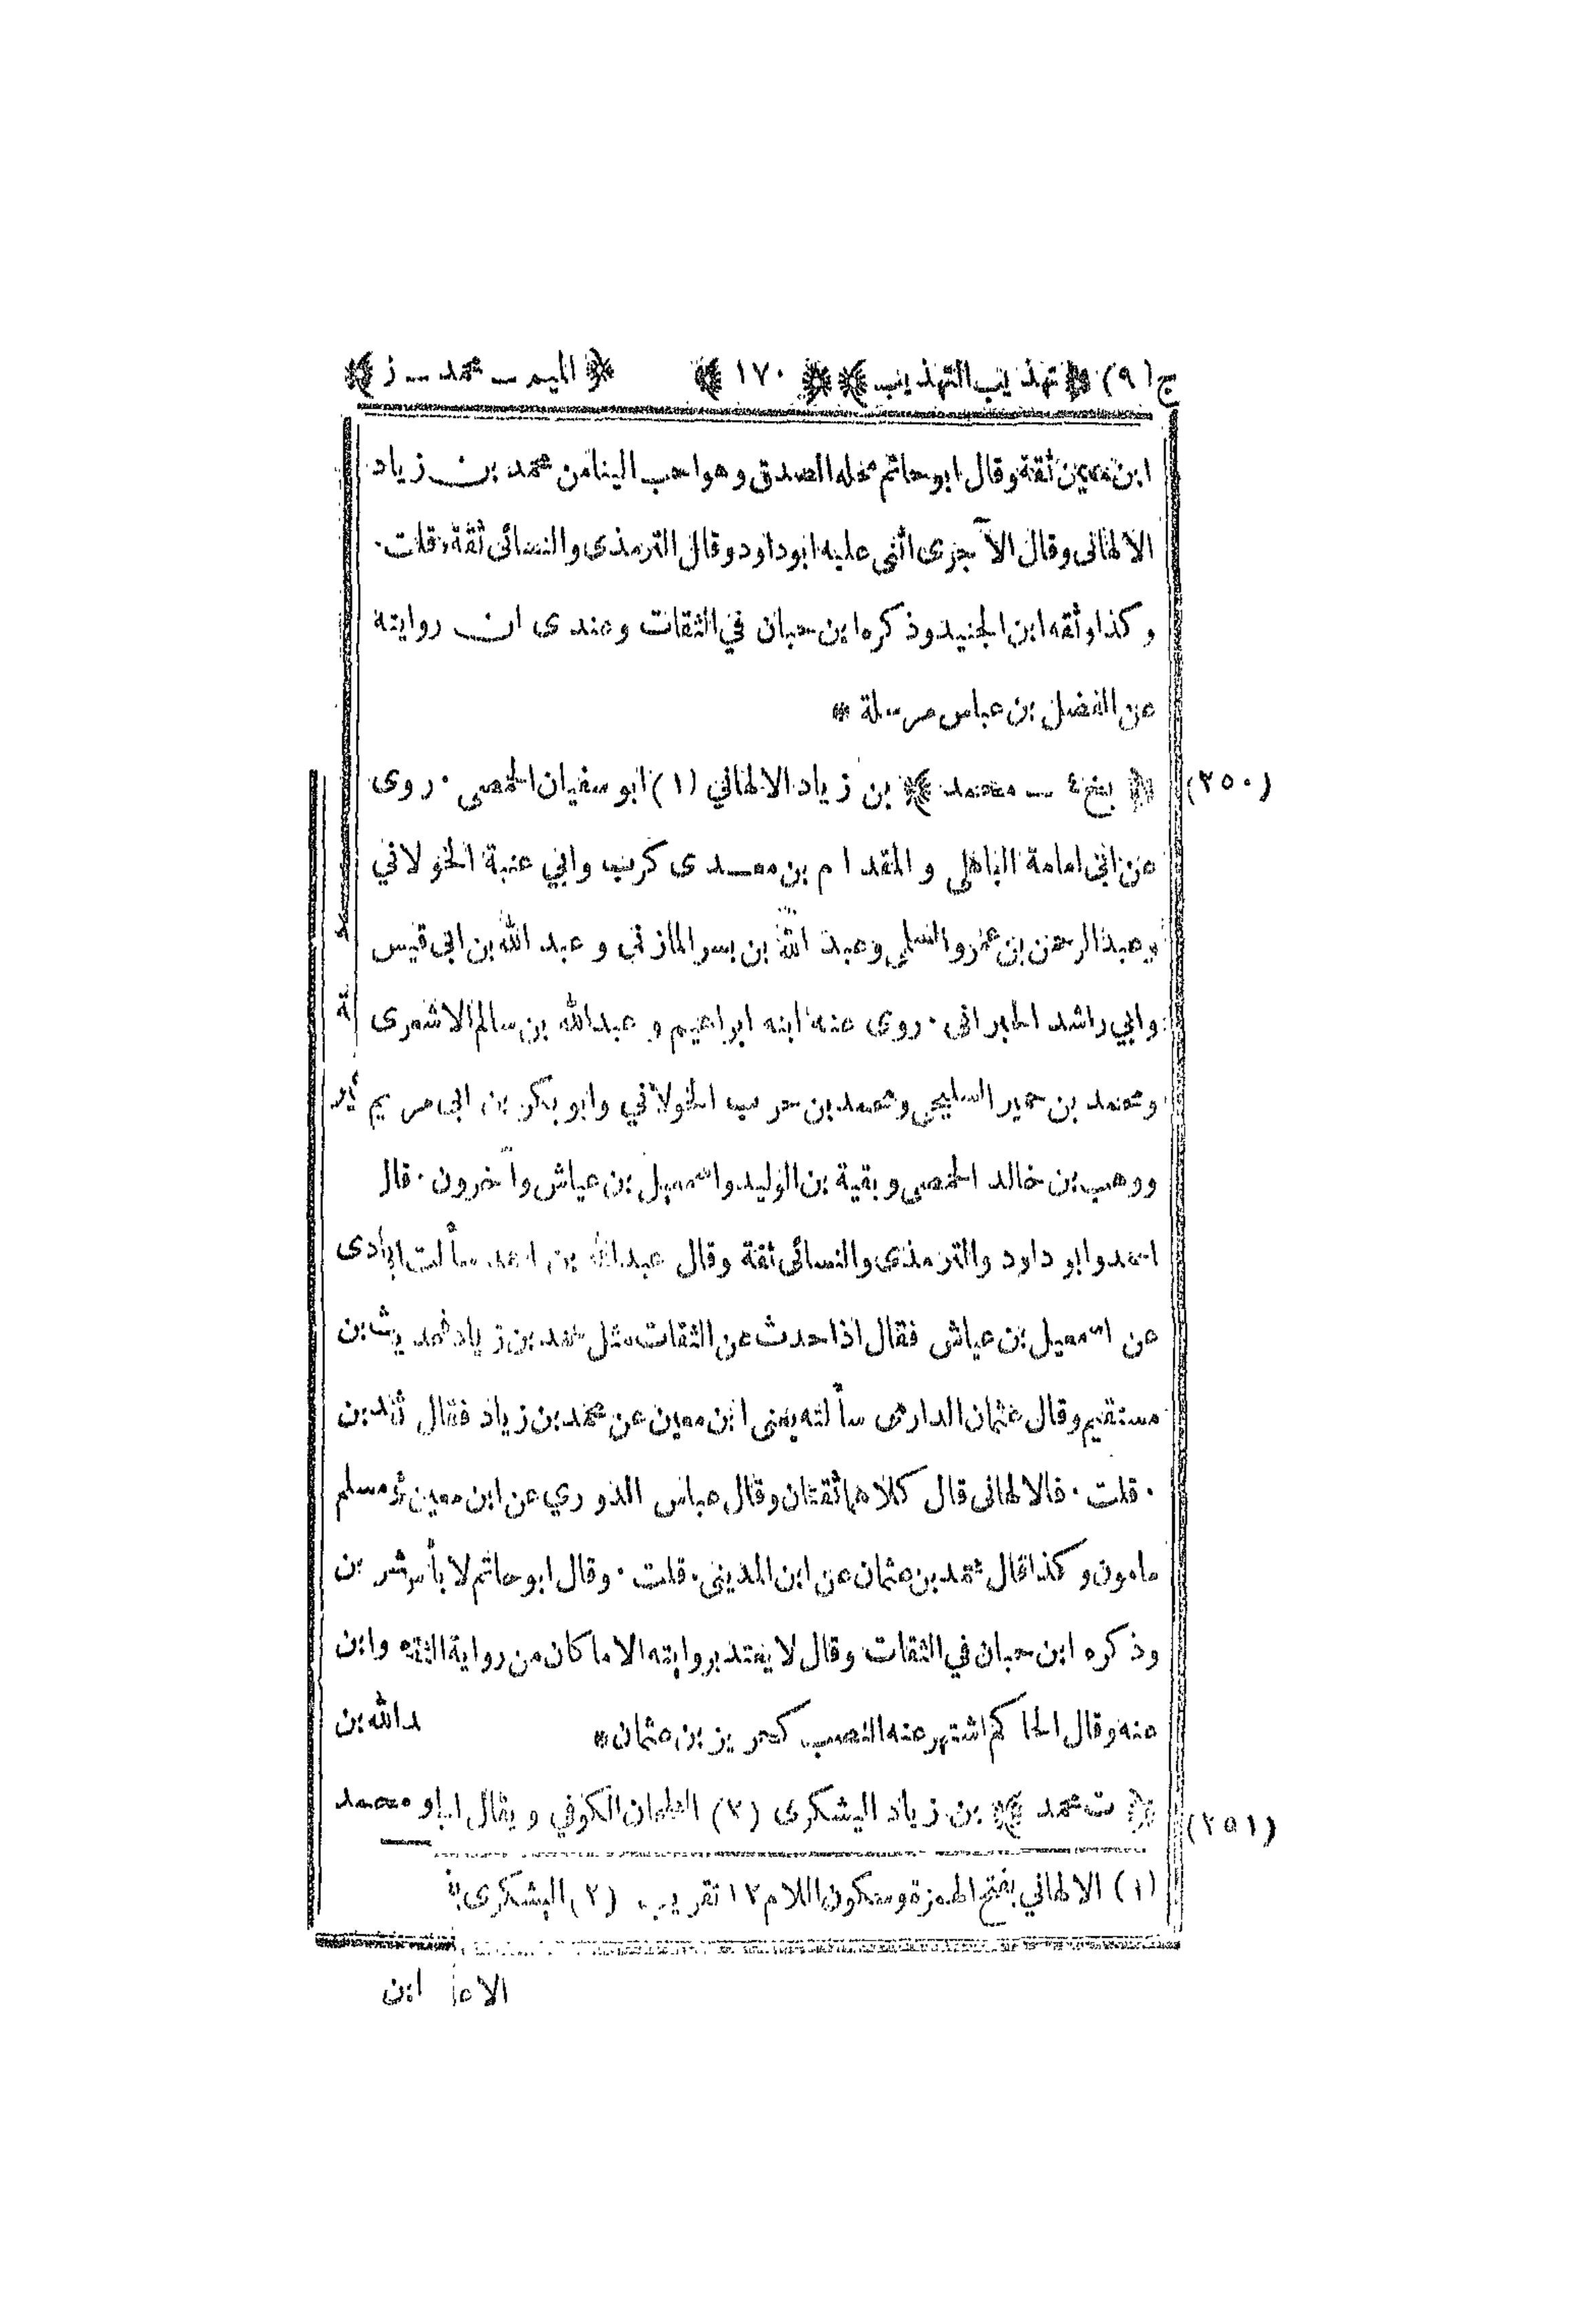 ج(٩) ﴿تهذيب التهذيب﴾ ﴿١٧٠﴾ ﴿الميم - محمد - ز﴾
ابن معين ثقة وقال ابو حاتم محله الصدق وهو احب الينا من محمد بن زياد
الالهانى وقال الآجرى اثنى عليه ابو داود وقال الترمذى والنسائى ثقة. قلت.
وكذا وثقه ابن الجنيد وذكره ابن حبان في الثقات وعندى ان روايته
عن الفضل بن عباس مرسلة *
(٢٥٠) ﴿بخ ٤ - محمد﴾ بن زياد الالهاني (١) ابو سفيان الحمصى. روى
عن ابى امامة الباهلي و المقدام بن معدى كرب وابي عنبة الخولاني
وعبد الرحمن بن عمرو السلمي وعبد الله بن بسر المازني و عبد الله بن ابى قيس
وابي راشد الحبرانى. روى عنه ابنه ابراهيم و عبد الله بن سالم الاشعرى
ومحمد بن حمير السليحي ومحمد بن حرب الخولاني وابو بكر بن ابى مريم
ووهب بن خالد الحمصى وبقية بن الوليد واسمعيل بن عياش وآخرون. قال
احمد وابو داود والترمذى والنسائى ثقة وقال عبد الله بن احمد سألت ابى
عن اسمعيل بن عياش فقال اذا حدث عن الثقات مثل محمد بن زياد
مستقيم وقال عثمان الدارمى سألته يعنى ابن معين عن محمد بن زياد فقال
. قلت. فالالهانى قال كلاهما ثقتان وقال عباس الدوري عن ابن معين
مامون وكذا قال محمد بن عثمان عن ابن المدينى. قلت. وقال ابو حاتم لا بأس
وذكره ابن حبان في الثقات وقال لا يعتد بروايته الا ما كان من رواية الثقة
عنه وقال الحاكم اشتهر عنه النصب كحريز بن عثمان*
(٢٥١) ﴿ت محمد﴾ بن زياد اليشكرى (٢) الطحان الكوفي ويقال
(١) الالهاني بفتح الهمزة وسكون اللام ١٢ تقريب (٢) اليشكرى
ابن